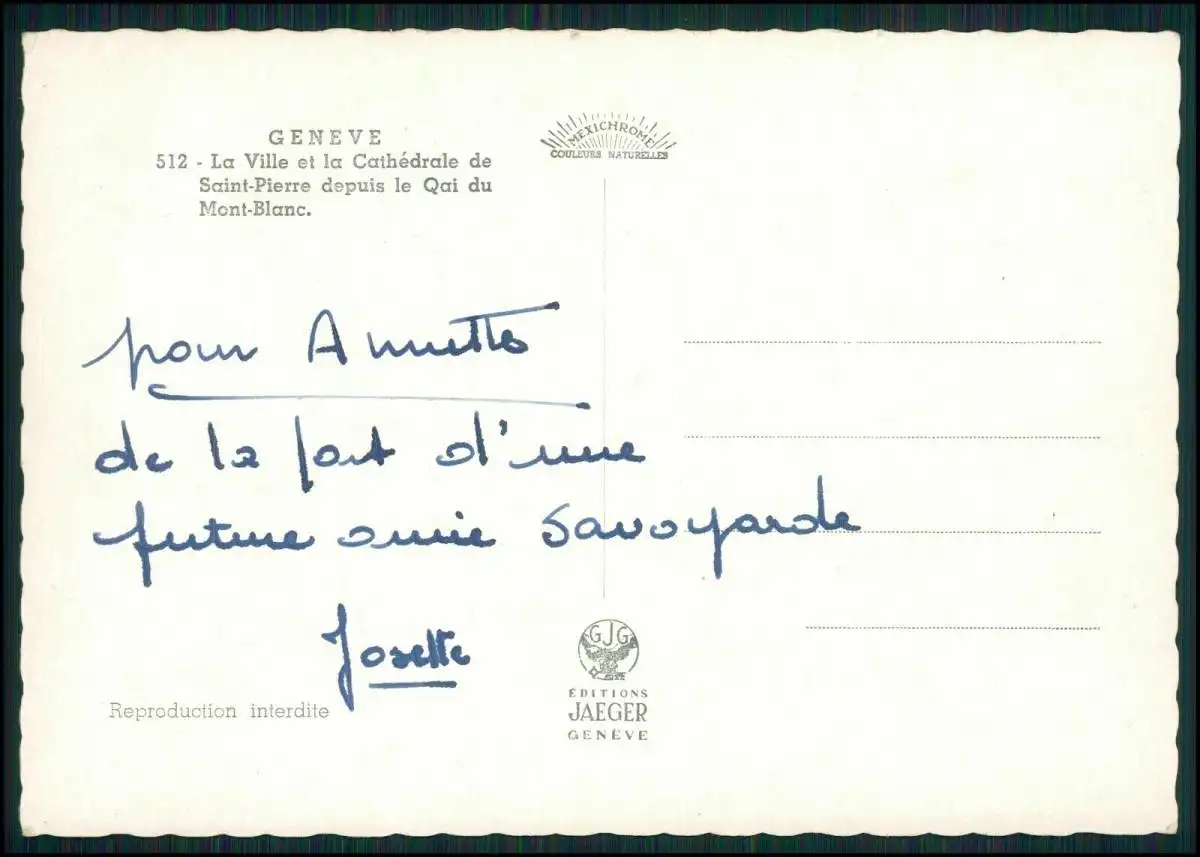 GENEVE
512 - La Ville et la Cathédrale de
Saint-Pierre depuis le Qai du
Mont-Blanc.
MEXICHROME
COULEURS NATURELLES
pour Annette
de la part d'une
future amie Savoyarde
Josette
Reproduction interdite
GJG
ÉDITIONS
JAEGER
GENÈVE